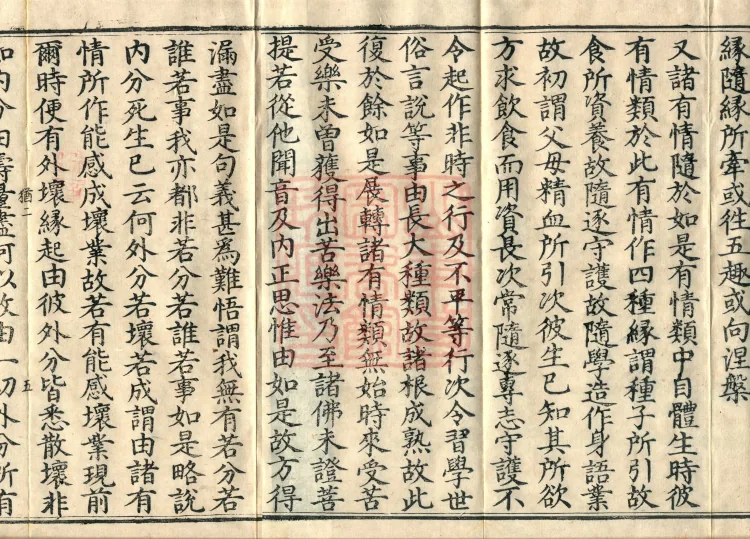 縁隨縁所牽或往五趣或向涅槃
又諸有情隨於如是有情類中自體生時彼
有情類於此有情作四種縁謂種子所引故
食所資養故隨逐守護故隨學造作身語業
故初謂父母精血所引次彼生已知其所欲
方求飲食而用資長次常隨逐專志守護不
令起作非時之行及不平等行次令習學世
俗言說等事由長大種類故諸根成熟故此
復於餘如是展轉諸有情類無始時來受苦
受樂未曾獲得出苦樂法乃至諸佛未證菩
提若從他聞音及内正思惟由如是故方得
漏盡如是句義甚爲難悟謂我無有若分若
誰若事我亦都非若分若誰若事如是略說
内分死生已云何外分若壞若成謂由諸有
情所作能感成壞業故若有能感壞業現前
爾時便有外壞縁起由彼外分皆悉散壞非
猶二
五
如内分由壽量盡何以故由一切外分所有